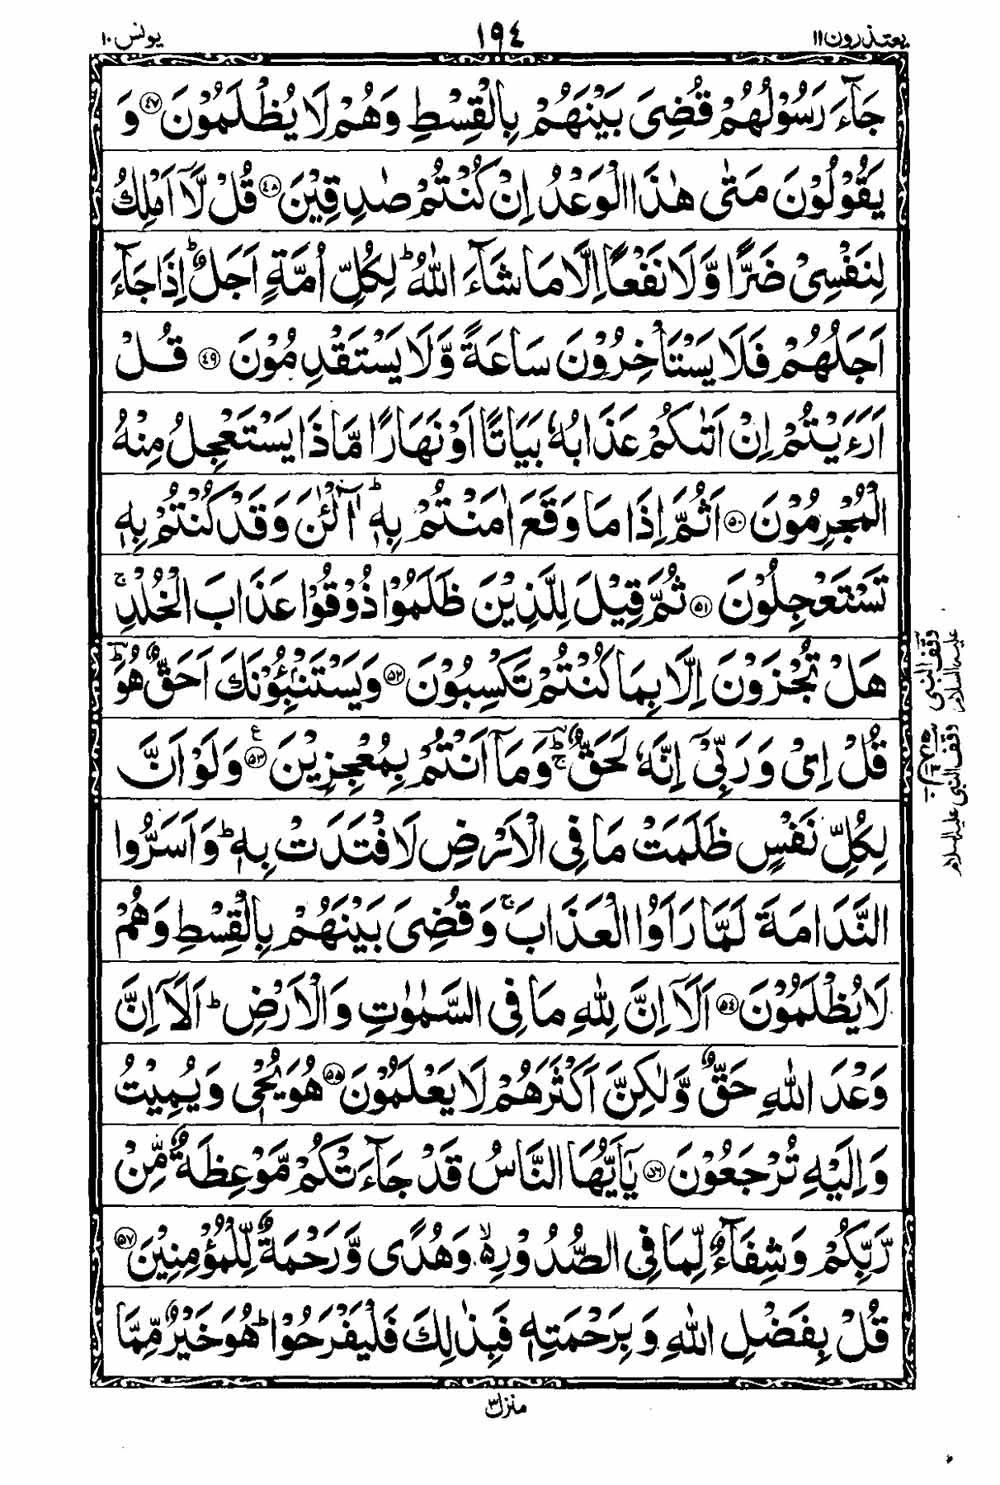 يعتذرون ١١ ١٩٤ يونس ١٠
جَآءَ رَسُوْلُهُمْ قُضِىَ بَيْنَهُمْ بِالْقِسْطِ وَهُمْ لَا يُظْلَمُوْنَ ﴿۴۷﴾ وَ
يَقُوْلُوْنَ مَتٰى هٰذَا الْوَعْدُ اِنْ كُنْتُمْ صٰدِقِيْنَ ﴿۴۸﴾ قُلْ لَّآ اَمْلِكُ
لِنَفْسِىْ ضَرًّا وَّلَا نَفْعًا اِلَّا مَا شَآءَ اللّٰهُ ؕ لِكُلِّ اُمَّةٍ اَجَلٌ ؕ اِذَا جَآءَ
اَجَلُهُمْ فَلَا يَسْتَاْخِرُوْنَ سَاعَةً وَّلَا يَسْتَقْدِمُوْنَ ﴿۴۹﴾ قُلْ
اَرَءَيْتُمْ اِنْ اَتٰىكُمْ عَذَابُهٗ بَيَاتًا اَوْ نَهَارًا مَّاذَا يَسْتَعْجِلُ مِنْهُ
الْمُجْرِمُوْنَ ﴿۵۰﴾ اَثُمَّ اِذَا مَا وَقَعَ اٰمَنْتُمْ بِهٖ ؕ آٰلْـٰٔنَ وَقَدْ كُنْتُمْ بِهٖ
تَسْتَعْجِلُوْنَ ﴿۵۱﴾ ثُمَّ قِيْلَ لِلَّذِيْنَ ظَلَمُوْا ذُوْقُوْا عَذَابَ الْخُلْدِ ۚ
هَلْ تُجْزَوْنَ اِلَّا بِمَا كُنْتُمْ تَكْسِبُوْنَ ﴿۵۲﴾ وَيَسْتَنْۢبِـُٔوْنَكَ اَحَقٌّ هُوَ ؕ
قُلْ اِىْ وَرَبِّىْٓ اِنَّهٗ لَحَقٌّ ؕۚ وَمَآ اَنْتُمْ بِمُعْجِزِيْنَ ﴿۵۳﴾ ع وَلَوْ اَنَّ
لِكُلِّ نَفْسٍ ظَلَمَتْ مَا فِى الْاَرْضِ لَافْتَدَتْ بِهٖ ؕ وَاَسَرُّوا
النَّدَامَةَ لَمَّا رَاَوُا الْعَذَابَ ۚ وَقُضِىَ بَيْنَهُمْ بِالْقِسْطِ وَهُمْ
لَا يُظْلَمُوْنَ ﴿۵۴﴾ اَلَآ اِنَّ لِلّٰهِ مَا فِى السَّمٰوٰتِ وَالْاَرْضِ ؕ اَلَآ اِنَّ
وَعْدَ اللّٰهِ حَقٌّ وَّلٰكِنَّ اَكْثَرَهُمْ لَا يَعْلَمُوْنَ ﴿۵۵﴾ هُوَ يُحْىٖ وَيُمِيْتُ
وَاِلَيْهِ تُرْجَعُوْنَ ﴿۵۶﴾ يٰٓاَيُّهَا النَّاسُ قَدْ جَآءَتْكُمْ مَّوْعِظَةٌ مِّنْ
رَّبِّكُمْ وَشِفَآءٌ لِّمَا فِى الصُّدُوْرِ ۙ۬ وَهُدًى وَّرَحْمَةٌ لِّلْمُؤْمِنِيْنَ ﴿۵۷﴾
قُلْ بِفَضْلِ اللّٰهِ وَبِرَحْمَتِهٖ فَبِذٰلِكَ فَلْيَفْرَحُوْا ؕ هُوَ خَيْرٌ مِّمَّا
وقف النبى عليه السلام
وقف النبى عليه السلام
منزل ٣